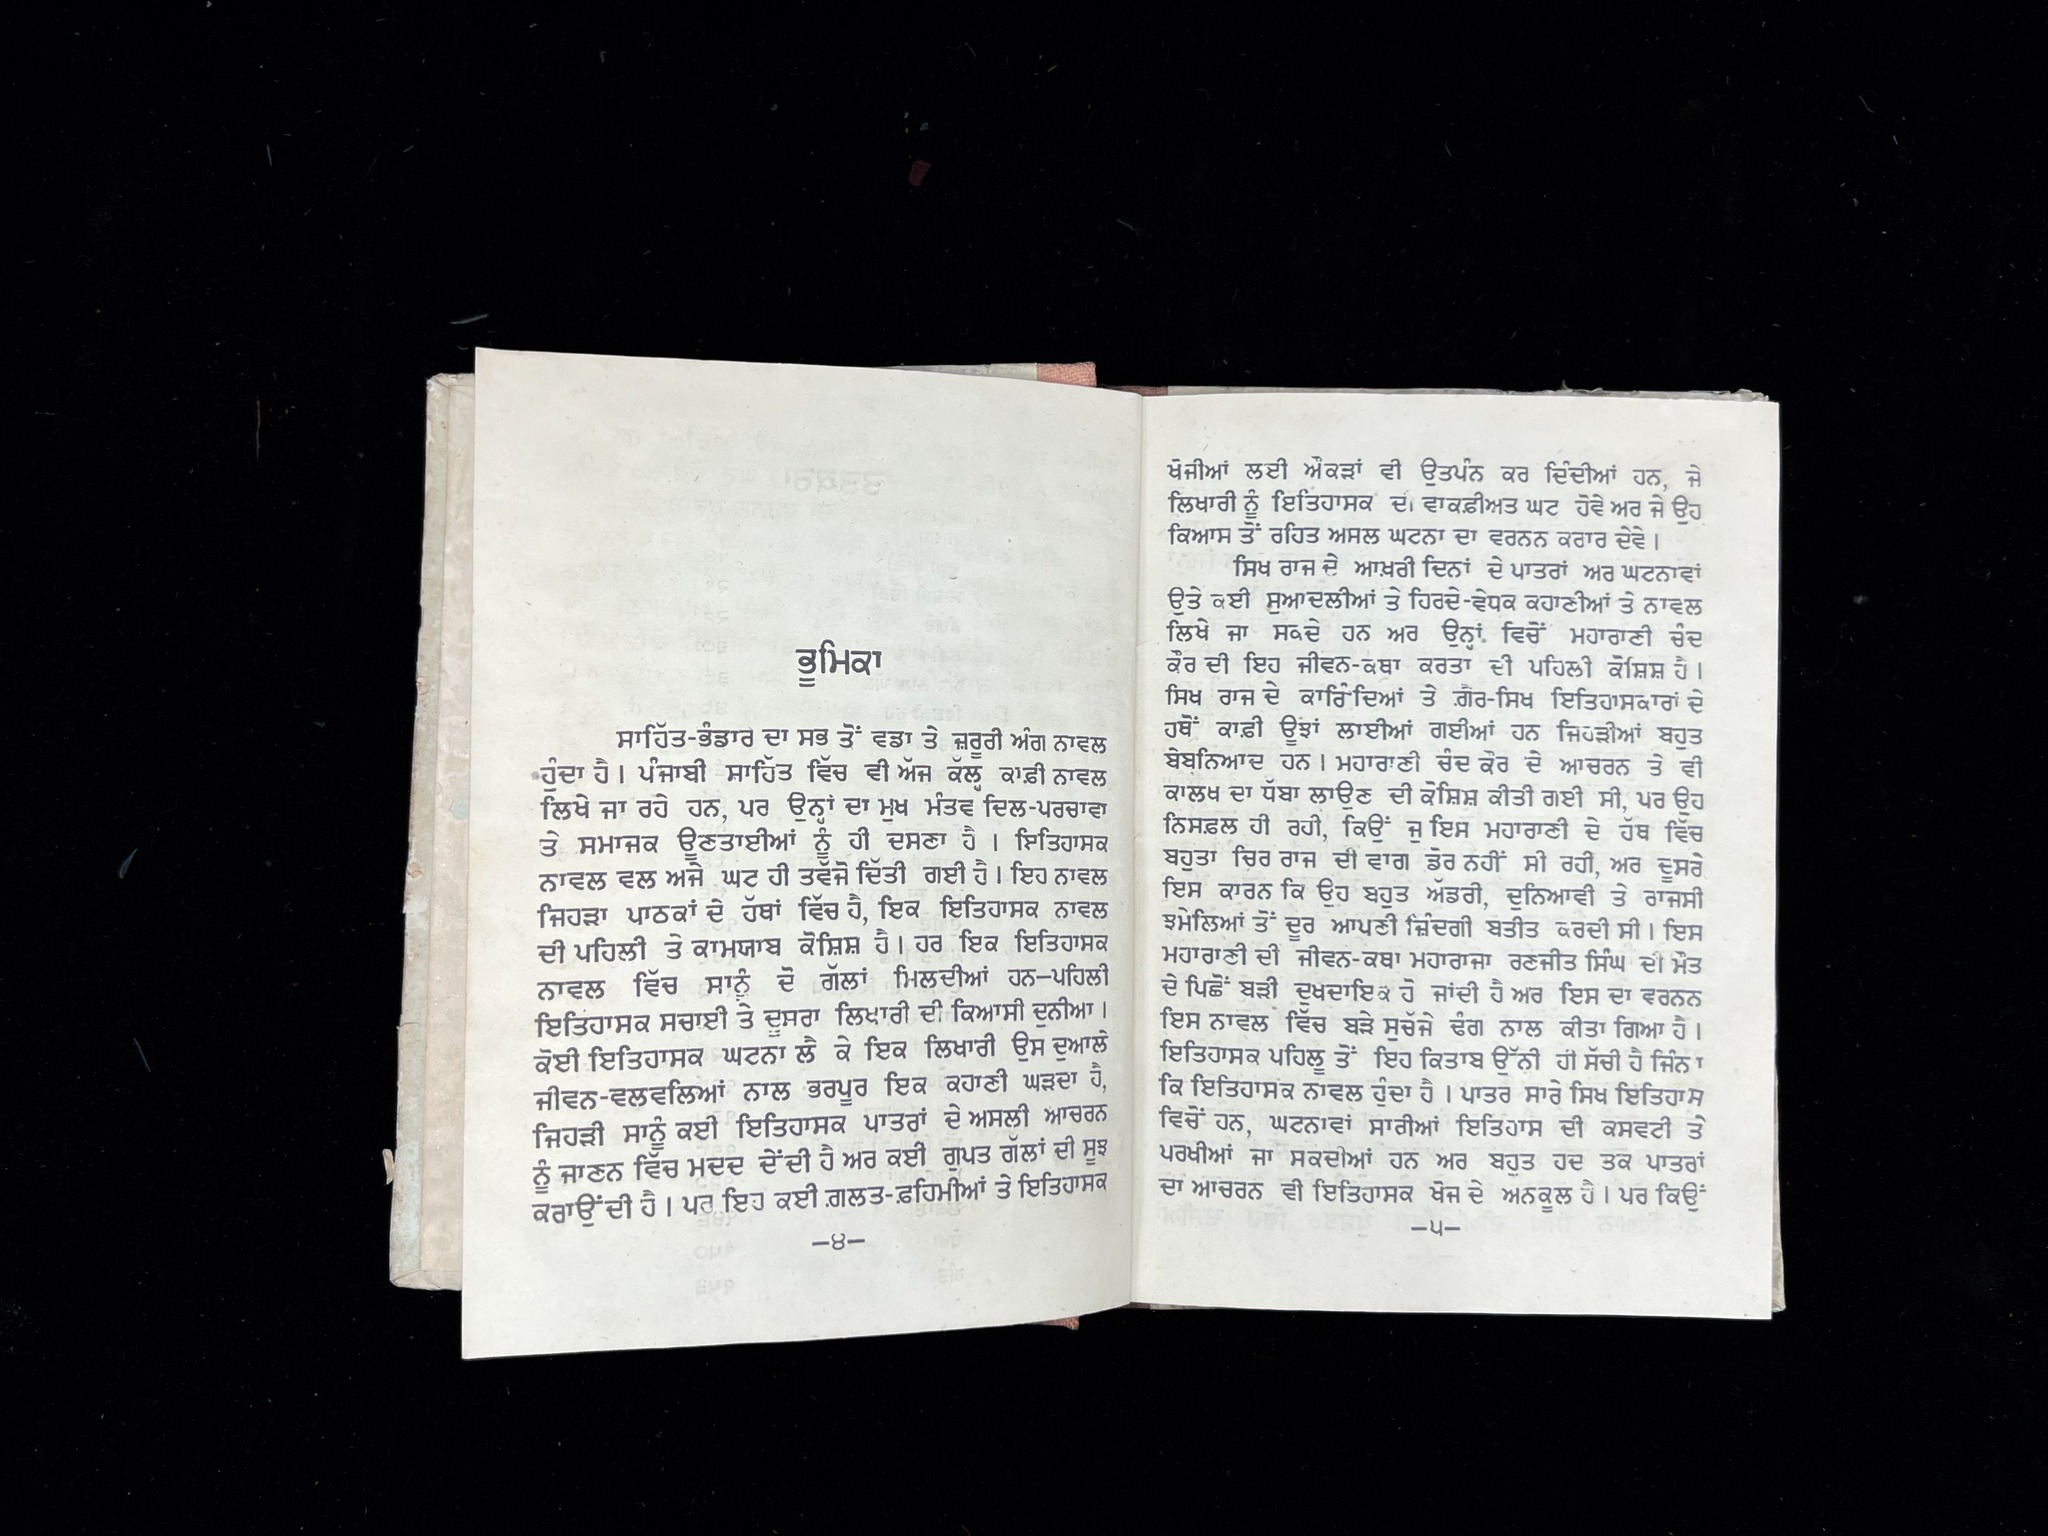 ਭੂਮਿਕਾ
ਸਾਹਿੱਤ-ਭੰਡਾਰ ਦਾ ਸਭ ਤੋਂ ਵਡਾ ਤੇ ਜ਼ਰੂਰੀ ਅੰਗ ਨਾਵਲ
ਹੁੰਦਾ ਹੈ। ਪੰਜਾਬੀ ਸਾਹਿੱਤ ਵਿੱਚ ਵੀ ਅੱਜ ਕੱਲ੍ਹ ਕਾਫ਼ੀ ਨਾਵਲ
ਲਿਖੇ ਜਾ ਰਹੇ ਹਨ, ਪਰ ਉਨ੍ਹਾਂ ਦਾ ਮੁਖ ਮੰਤਵ ਦਿਲ-ਪਰਚਾਵਾ
ਤੇ ਸਮਾਜਕ ਊਣਤਾਈਆਂ ਨੂੰ ਹੀ ਦਸਣਾ ਹੈ। ਇਤਿਹਾਸਕ
ਨਾਵਲ ਵਲ ਅਜੇ ਘਟ ਹੀ ਤਵਜੋ ਦਿੱਤੀ ਗਈ ਹੈ। ਇਹ ਨਾਵਲ
ਜਿਹੜਾ ਪਾਠਕਾਂ ਦੇ ਹੱਥਾਂ ਵਿੱਚ ਹੈ, ਇਕ ਇਤਿਹਾਸਕ ਨਾਵਲ
ਦੀ ਪਹਿਲੀ ਤੇ ਕਾਮਯਾਬ ਕੋਸ਼ਿਸ਼ ਹੈ। ਹਰ ਇਕ ਇਤਿਹਾਸਕ
ਨਾਵਲ ਵਿੱਚ ਸਾਨੂੰ ਦੋ ਗੱਲਾਂ ਮਿਲਦੀਆਂ ਹਨ—ਪਹਿਲੀ
ਇਤਿਹਾਸਕ ਸਚਾਈ ਤੇ ਦੂਸਰਾ ਲਿਖਾਰੀ ਦੀ ਕਿਆਸੀ ਦੁਨੀਆ।
ਕੋਈ ਇਤਿਹਾਸਕ ਘਟਨਾ ਲੈ ਕੇ ਇਕ ਲਿਖਾਰੀ ਉਸ ਦੁਆਲੇ
ਜੀਵਨ-ਵਲਵਲਿਆਂ ਨਾਲ ਭਰਪੂਰ ਇਕ ਕਹਾਣੀ ਘੜਦਾ ਹੈ,
ਜਿਹੜੀ ਸਾਨੂੰ ਕਈ ਇਤਿਹਾਸਕ ਪਾਤਰਾਂ ਦੇ ਅਸਲੀ ਆਚਰਨ
ਨੂੰ ਜਾਣਨ ਵਿੱਚ ਮਦਦ ਦੇਂਦੀ ਹੈ ਅਰ ਕਈ ਗੁਪਤ ਗੱਲਾਂ ਦੀ ਸੂਝ
ਕਰਾਉਂਦੀ ਹੈ। ਪਰ ਇਹ ਕਈ ਗ਼ਲਤ-ਫ਼ਹਿਮੀਆਂ ਤੇ ਇਤਿਹਾਸਕ
—੪—
ਖੋਜੀਆਂ ਲਈ ਔਕੜਾਂ ਵੀ ਉਤਪੰਨ ਕਰ ਦਿੰਦੀਆਂ ਹਨ, ਜੇ
ਲਿਖਾਰੀ ਨੂੰ ਇਤਿਹਾਸਕ ਦੀ ਵਾਕਫ਼ੀਅਤ ਘਟ ਹੋਵੇ ਅਰ ਜੇ ਉਹ
ਕਿਆਸ ਤੋਂ ਰਹਿਤ ਅਸਲ ਘਟਨਾ ਦਾ ਵਰਨਨ ਕਰਾਰ ਦੇਵੇ।
ਸਿਖ ਰਾਜ ਦੇ ਆਖ਼ਰੀ ਦਿਨਾਂ ਦੇ ਪਾਤਰਾਂ ਅਰ ਘਟਨਾਵਾਂ
ਉਤੇ ਕਈ ਸੁਆਦਲੀਆਂ ਤੇ ਹਿਰਦੇ-ਵੇਧਕ ਕਹਾਣੀਆਂ ਤੇ ਨਾਵਲ
ਲਿਖੇ ਜਾ ਸਕਦੇ ਹਨ ਅਰ ਉਨ੍ਹਾਂ ਵਿਚੋਂ ਮਹਾਰਾਣੀ ਚੰਦ
ਕੌਰ ਦੀ ਇਹ ਜੀਵਨ-ਕਥਾ ਕਰਤਾ ਦੀ ਪਹਿਲੀ ਕੋਸ਼ਿਸ਼ ਹੈ।
ਸਿਖ ਰਾਜ ਦੇ ਕਾਰਿੰਦਿਆਂ ਤੇ ਗ਼ੈਰ-ਸਿਖ ਇਤਿਹਾਸਕਾਰਾਂ ਦੇ
ਹਥੋਂ ਕਾਫ਼ੀ ਊਝਾਂ ਲਾਈਆਂ ਗਈਆਂ ਹਨ ਜਿਹੜੀਆਂ ਬਹੁਤ
ਬੇਬਨਿਆਦ ਹਨ। ਮਹਾਰਾਣੀ ਚੰਦ ਕੌਰ ਦੇ ਆਚਰਨ ਤੇ ਵੀ
ਕਾਲਖ ਦਾ ਧੱਬਾ ਲਾਉਣ ਦੀ ਕੋਸ਼ਿਸ਼ ਕੀਤੀ ਗਈ ਸੀ, ਪਰ ਉਹ
ਨਿਸਫ਼ਲ ਹੀ ਰਹੀ, ਕਿਉਂ ਜੁ ਇਸ ਮਹਾਰਾਣੀ ਦੇ ਹੱਥ ਵਿੱਚ
ਬਹੁਤਾ ਚਿਰ ਰਾਜ ਦੀ ਵਾਗ ਡੋਰ ਨਹੀਂ ਸੀ ਰਹੀ, ਅਰ ਦੂਸਰੇ
ਇਸ ਕਾਰਨ ਕਿ ਉਹ ਬਹੁਤ ਅੱਡਰੀ, ਦੁਨਿਆਵੀ ਤੇ ਰਾਜਸੀ
ਝਮੇਲਿਆਂ ਤੋਂ ਦੂਰ ਆਪਣੀ ਜ਼ਿੰਦਗੀ ਬਤੀਤ ਕਰਦੀ ਸੀ। ਇਸ
ਮਹਾਰਾਣੀ ਦੀ ਜੀਵਨ-ਕਥਾ ਮਹਾਰਾਜਾ ਰਣਜੀਤ ਸਿੰਘ ਦੀ ਮੌਤ
ਦੇ ਪਿਛੋਂ ਬੜੀ ਦੁਖਦਾਇਕ ਹੋ ਜਾਂਦੀ ਹੈ ਅਰ ਇਸ ਦਾ ਵਰਨਨ
ਇਸ ਨਾਵਲ ਵਿੱਚ ਬੜੇ ਸੁਚੱਜੇ ਢੰਗ ਨਾਲ ਕੀਤਾ ਗਿਆ ਹੈ।
ਇਤਿਹਾਸਕ ਪਹਿਲੂ ਤੋਂ ਇਹ ਕਿਤਾਬ ਉੱਨੀ ਹੀ ਸੱਚੀ ਹੈ ਜਿੰਨਾ
ਕਿ ਇਤਿਹਾਸਕ ਨਾਵਲ ਹੁੰਦਾ ਹੈ। ਪਾਤਰ ਸਾਰੇ ਸਿਖ ਇਤਿਹਾਸ
ਵਿਚੋਂ ਹਨ, ਘਟਨਾਵਾਂ ਸਾਰੀਆਂ ਇਤਿਹਾਸ ਦੀ ਕਸਵਟੀ ਤੇ
ਪਰਖੀਆਂ ਜਾ ਸਕਦੀਆਂ ਹਨ ਅਰ ਬਹੁਤ ਹਦ ਤਕ ਪਾਤਰਾਂ
ਦਾ ਆਚਰਨ ਵੀ ਇਤਿਹਾਸਕ ਖੋਜ ਦੇ ਅਨਕੂਲ ਹੈ। ਪਰ ਕਿਉਂ
—੫—